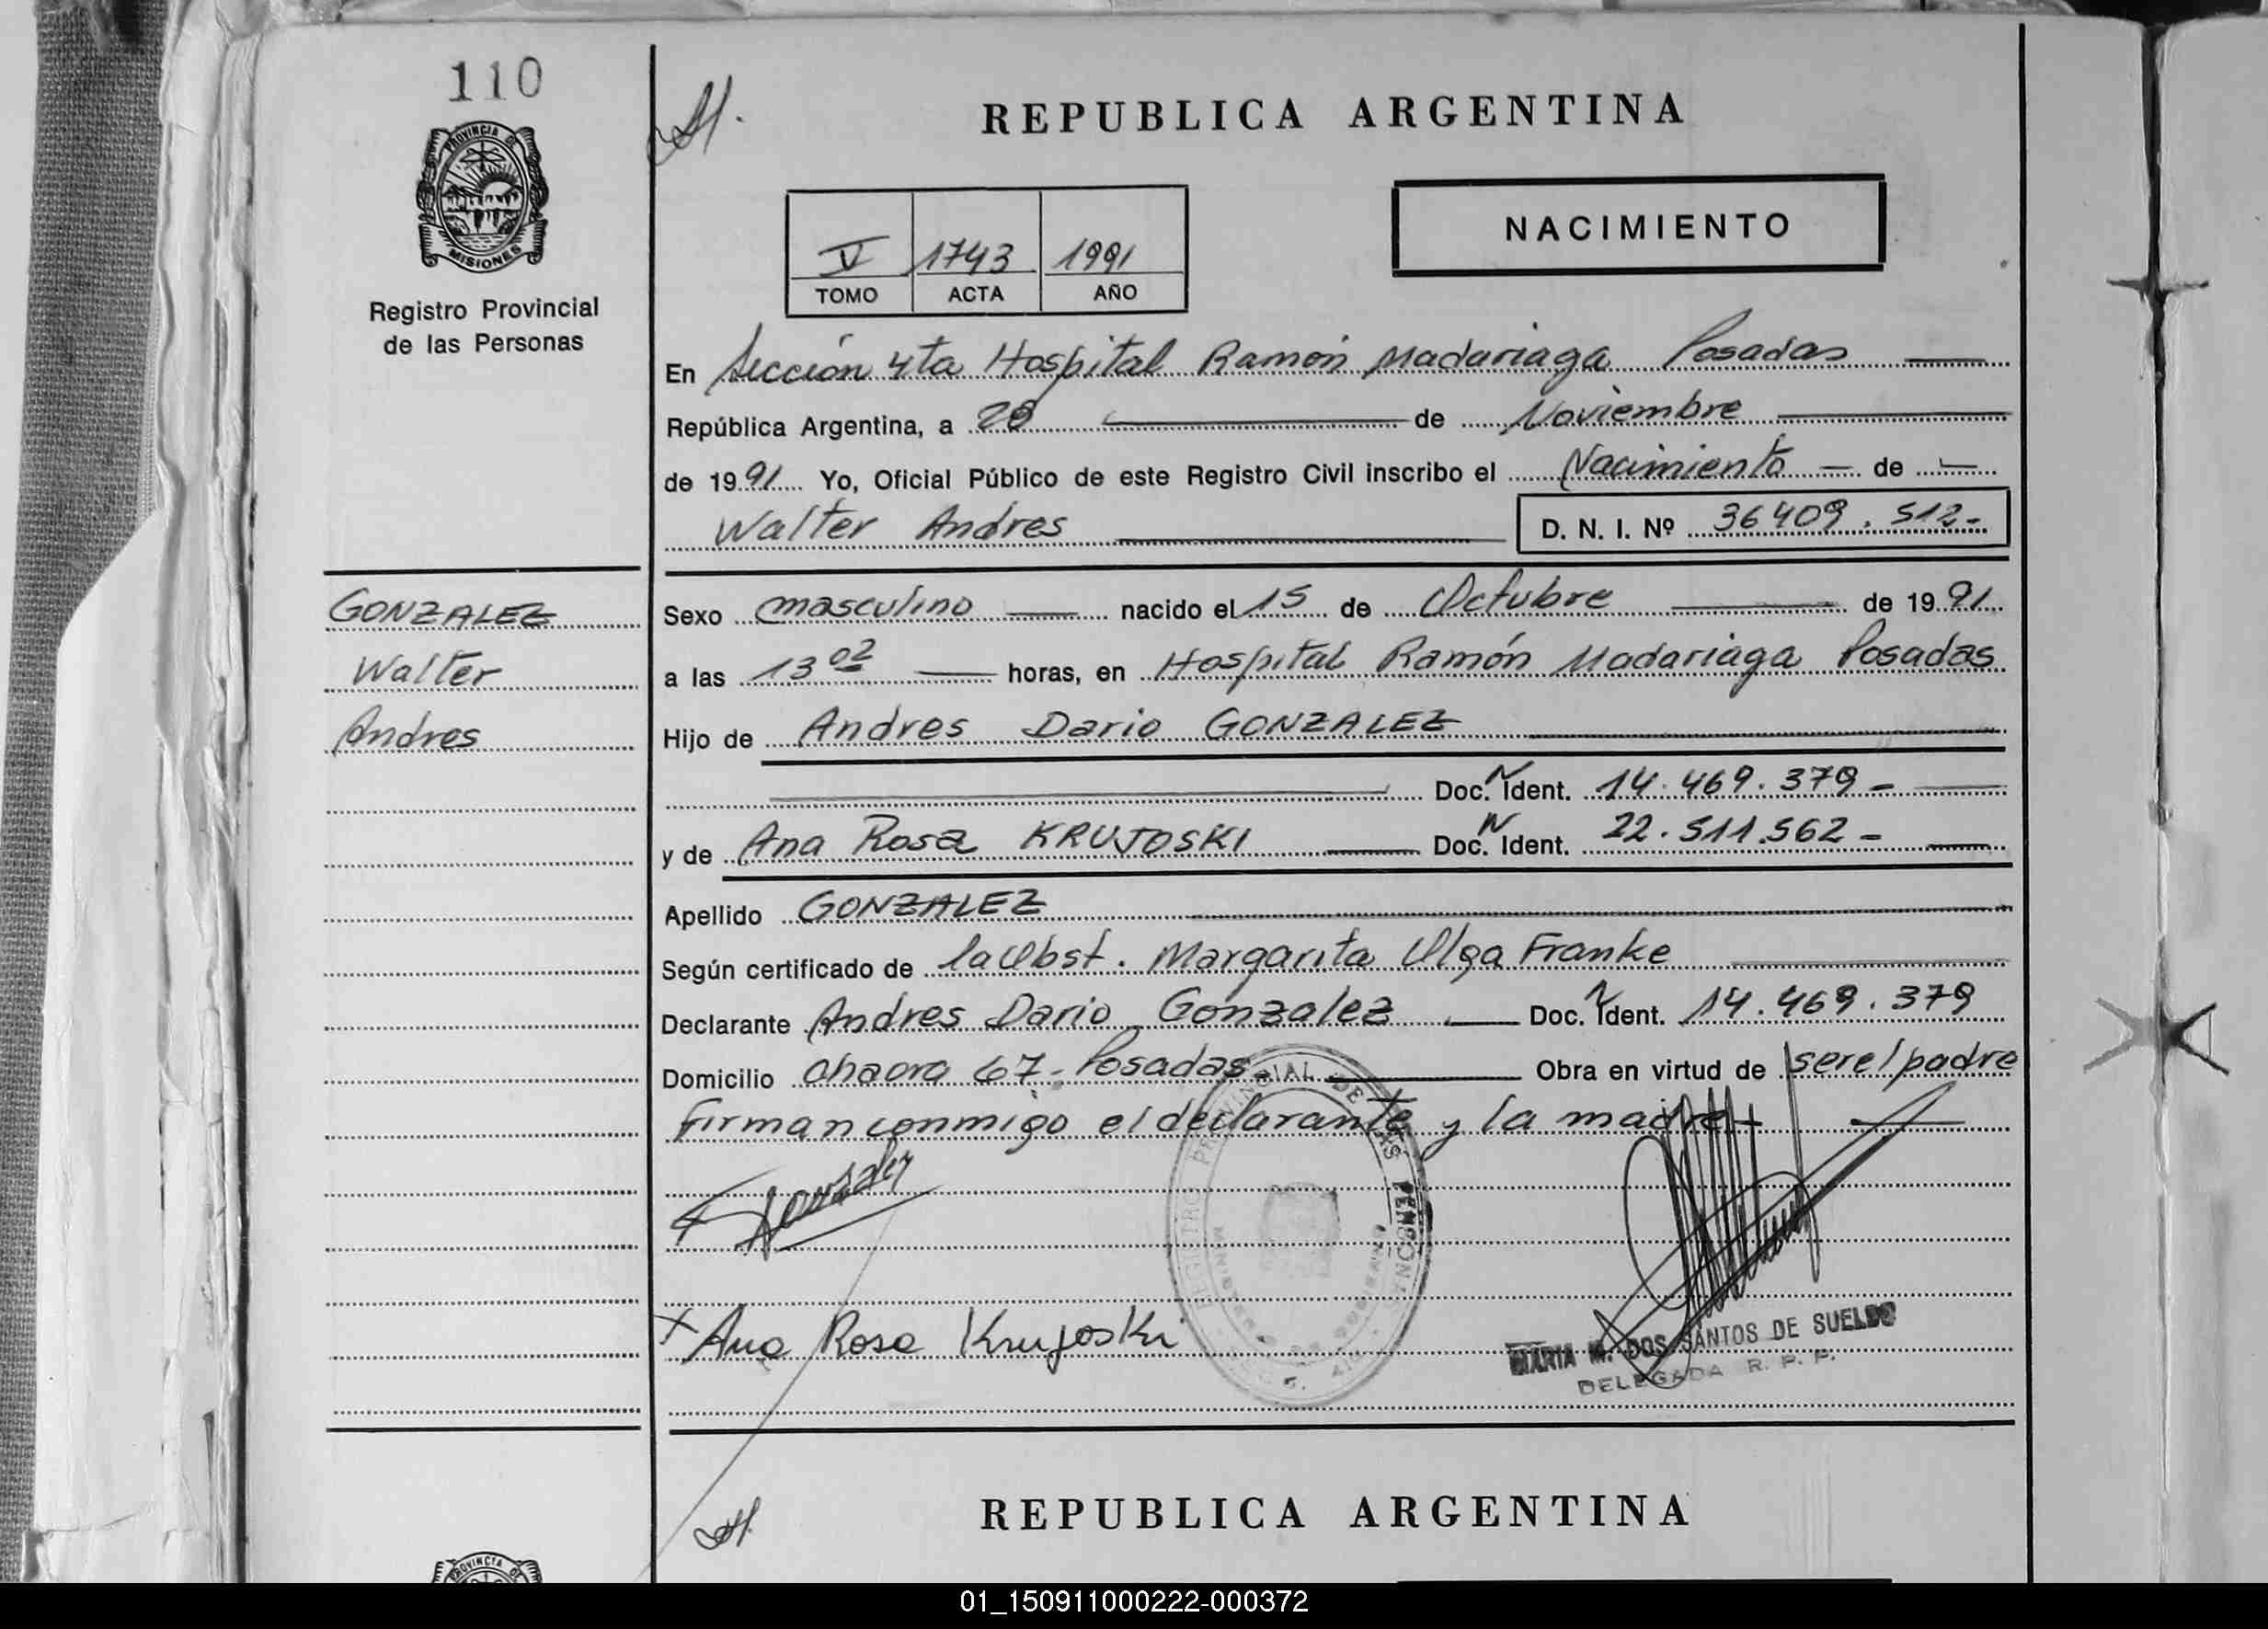 110
PROVINCIA DE
MISIONES
Registro Provincial
de las Personas
REPUBLICA ARGENTINA
NACIMIENTO
V 1743 1991
TOMO ACTA AÑO
En Sección 4ta Hospital Ramón Madariaga Posadas
República Argentina, a 28 de Noviembre
de 1991 Yo, Oficial Público de este Registro Civil inscribo el Nacimiento de
Walter Andres D. N. I. Nº 36409.512-
GONZALEZ
Walter
Andres
Sexo masculino nacido el 15 de Octubre de 1991
a las 13 02 horas, en Hospital Ramón Madariaga Posadas
Hijo de Andres Dario GONZALEZ
Doc. N Ident. 14.469.379-
y de Ana Rosa KRUJOSKI Doc. N Ident. 22.511.562-
Apellido GONZALEZ
Según certificado de la Obst. Margarita Olga Franke
Declarante Andres Dario Gonzalez Doc. N Ident. 14.469.379
Domicilio Chacra 67- Posadas Obra en virtud de ser el padre
Firman conmigo el declarante y la madre
Gonzalez
x Ana Rosa Krujoski
REGISTRO PROVINCIAL DE LAS PERSONAS
MARIA M. DOS SANTOS DE SUELDO
DELEGADA R. P. P.
REPUBLICA ARGENTINA
PROVINCIA DE
01_150911000222-000372